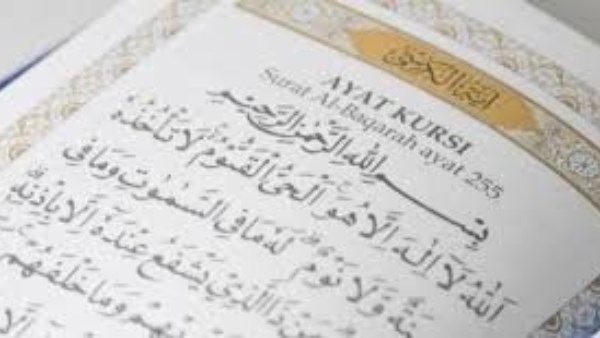 AYAT KURSI
Surat Al-Baqarah ayat 255
بِسْمِ اللهِ الرَّحْمٰنِ الرَّحِيْمِ
اَللهُ لَآ اِلٰهَ اِلَّا هُوَ الْحَيُّ الْقَيُّوْمُ لَا تَأْخُذُهٗ
وَّلَا نَوْمٌ ۗ لَهٗ مَا فِى السَّمٰوٰتِ وَمَا فِى
ذَا الَّذِيْ يَشْفَعُ عِنْدَهٗٓ اِلَّا بِاِذْنِهٖ ۗ
وَمَا خَلْفَهُمْ